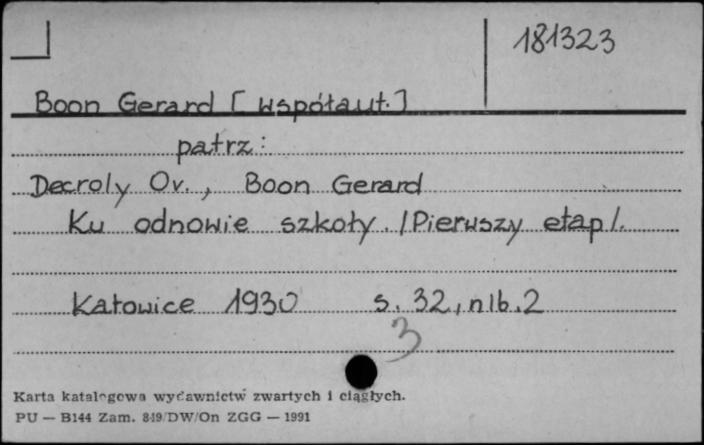 181323
Boon Gerard [współaut.]
patrz:
Decroly Ov., Boon Gerard
Ku odnowie szkoły. /Pierwszy etap/.
Katowice 1930 s. 32, nlb. 2
3
Karta katalogowa wydawnictw zwartych i ciągłych.
PU — B144 Zam. 849/DW/On ZGG — 1991